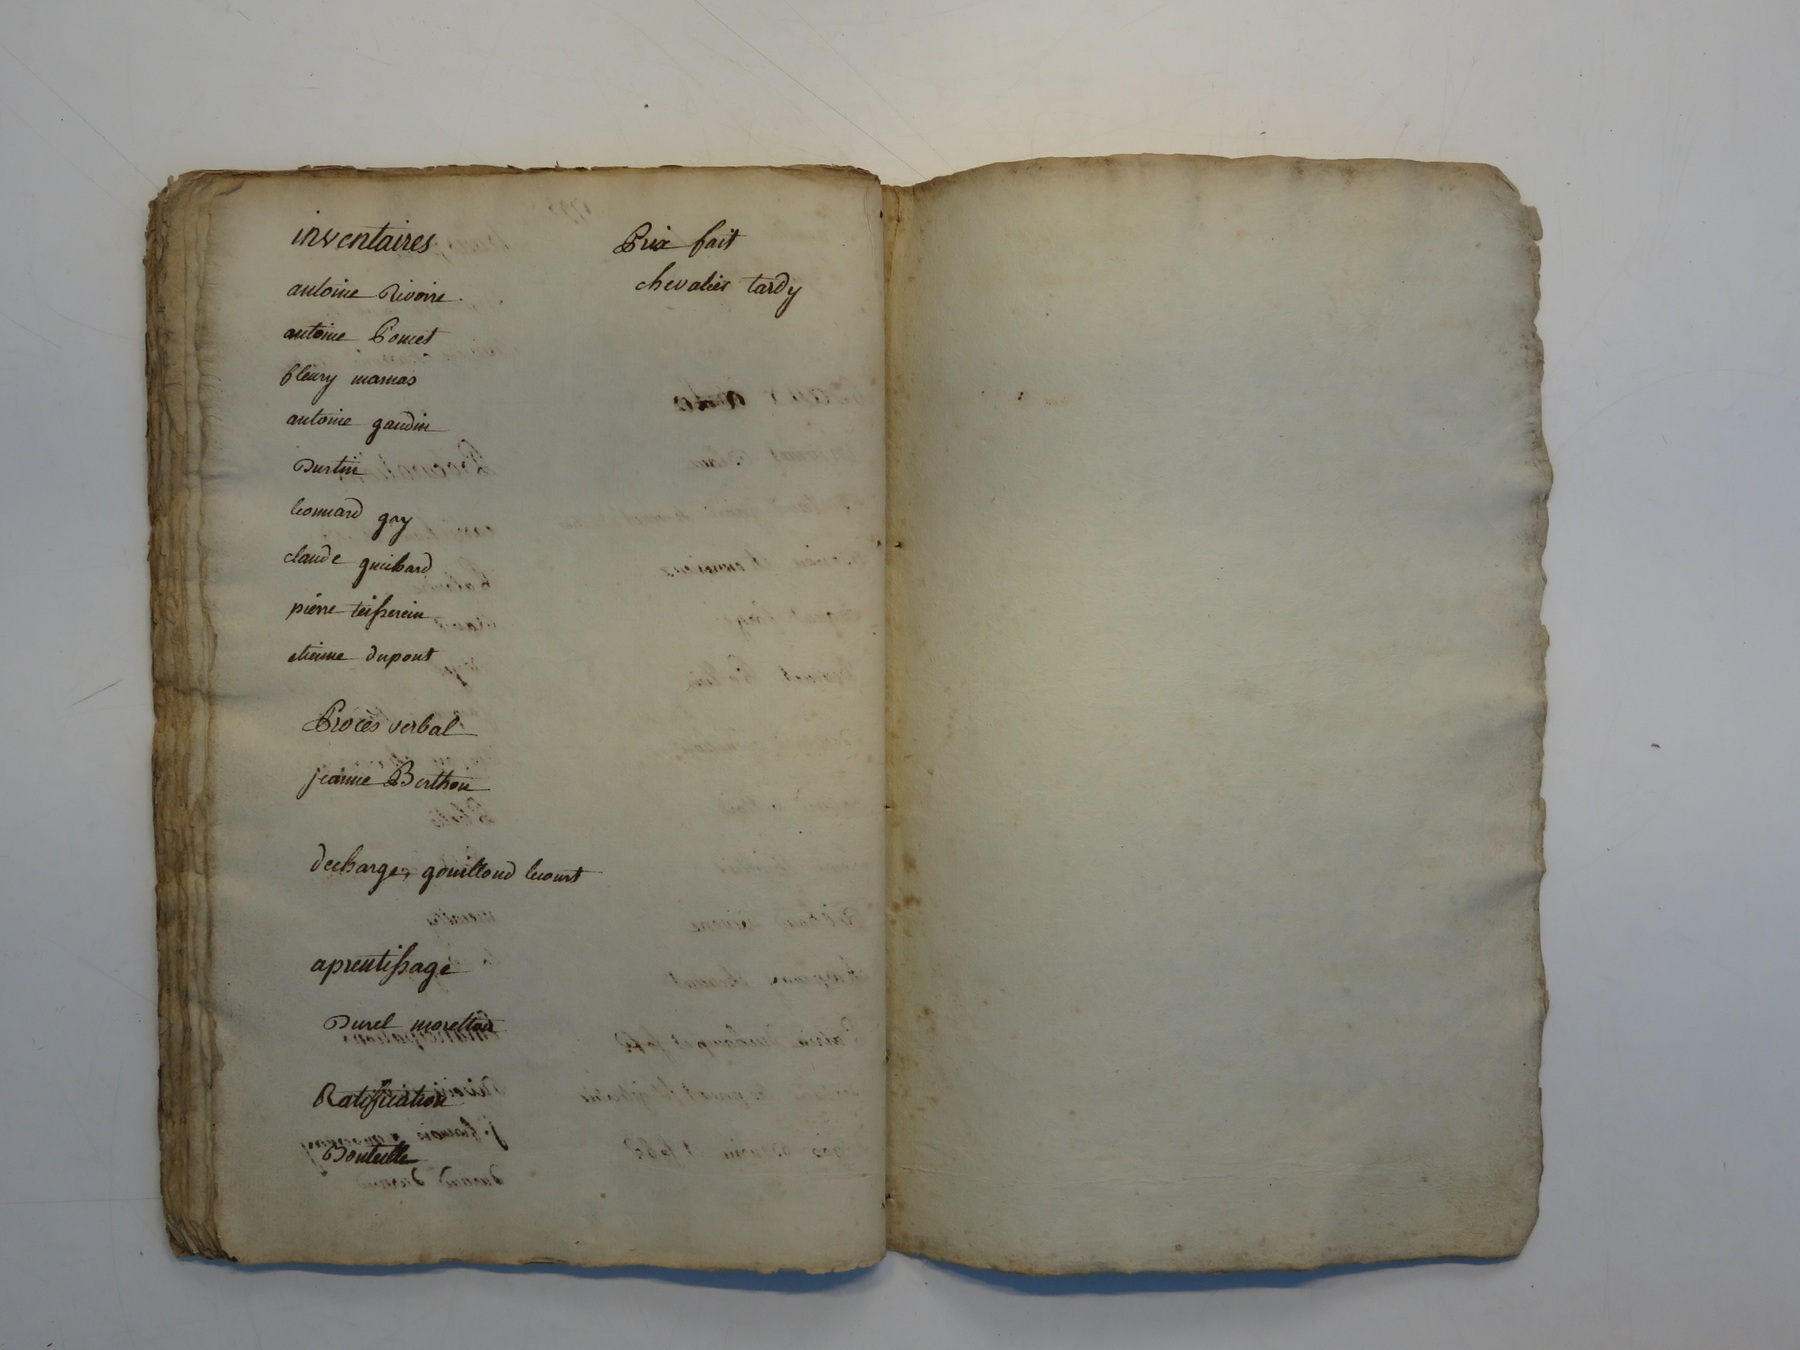 inventaires
antoine Rivoire.
antoine Poncet
fleury marnas
antoine gaudin
Durtin
leonnard gay
claude guichard
pierre teisserein
etienne dupont
Procès verbal
jeanne Berthon
decharge, gouilloud lecourt
aprentissage
Durel
Ratiffication
Bouteille
Prix fait
chevalier tardy